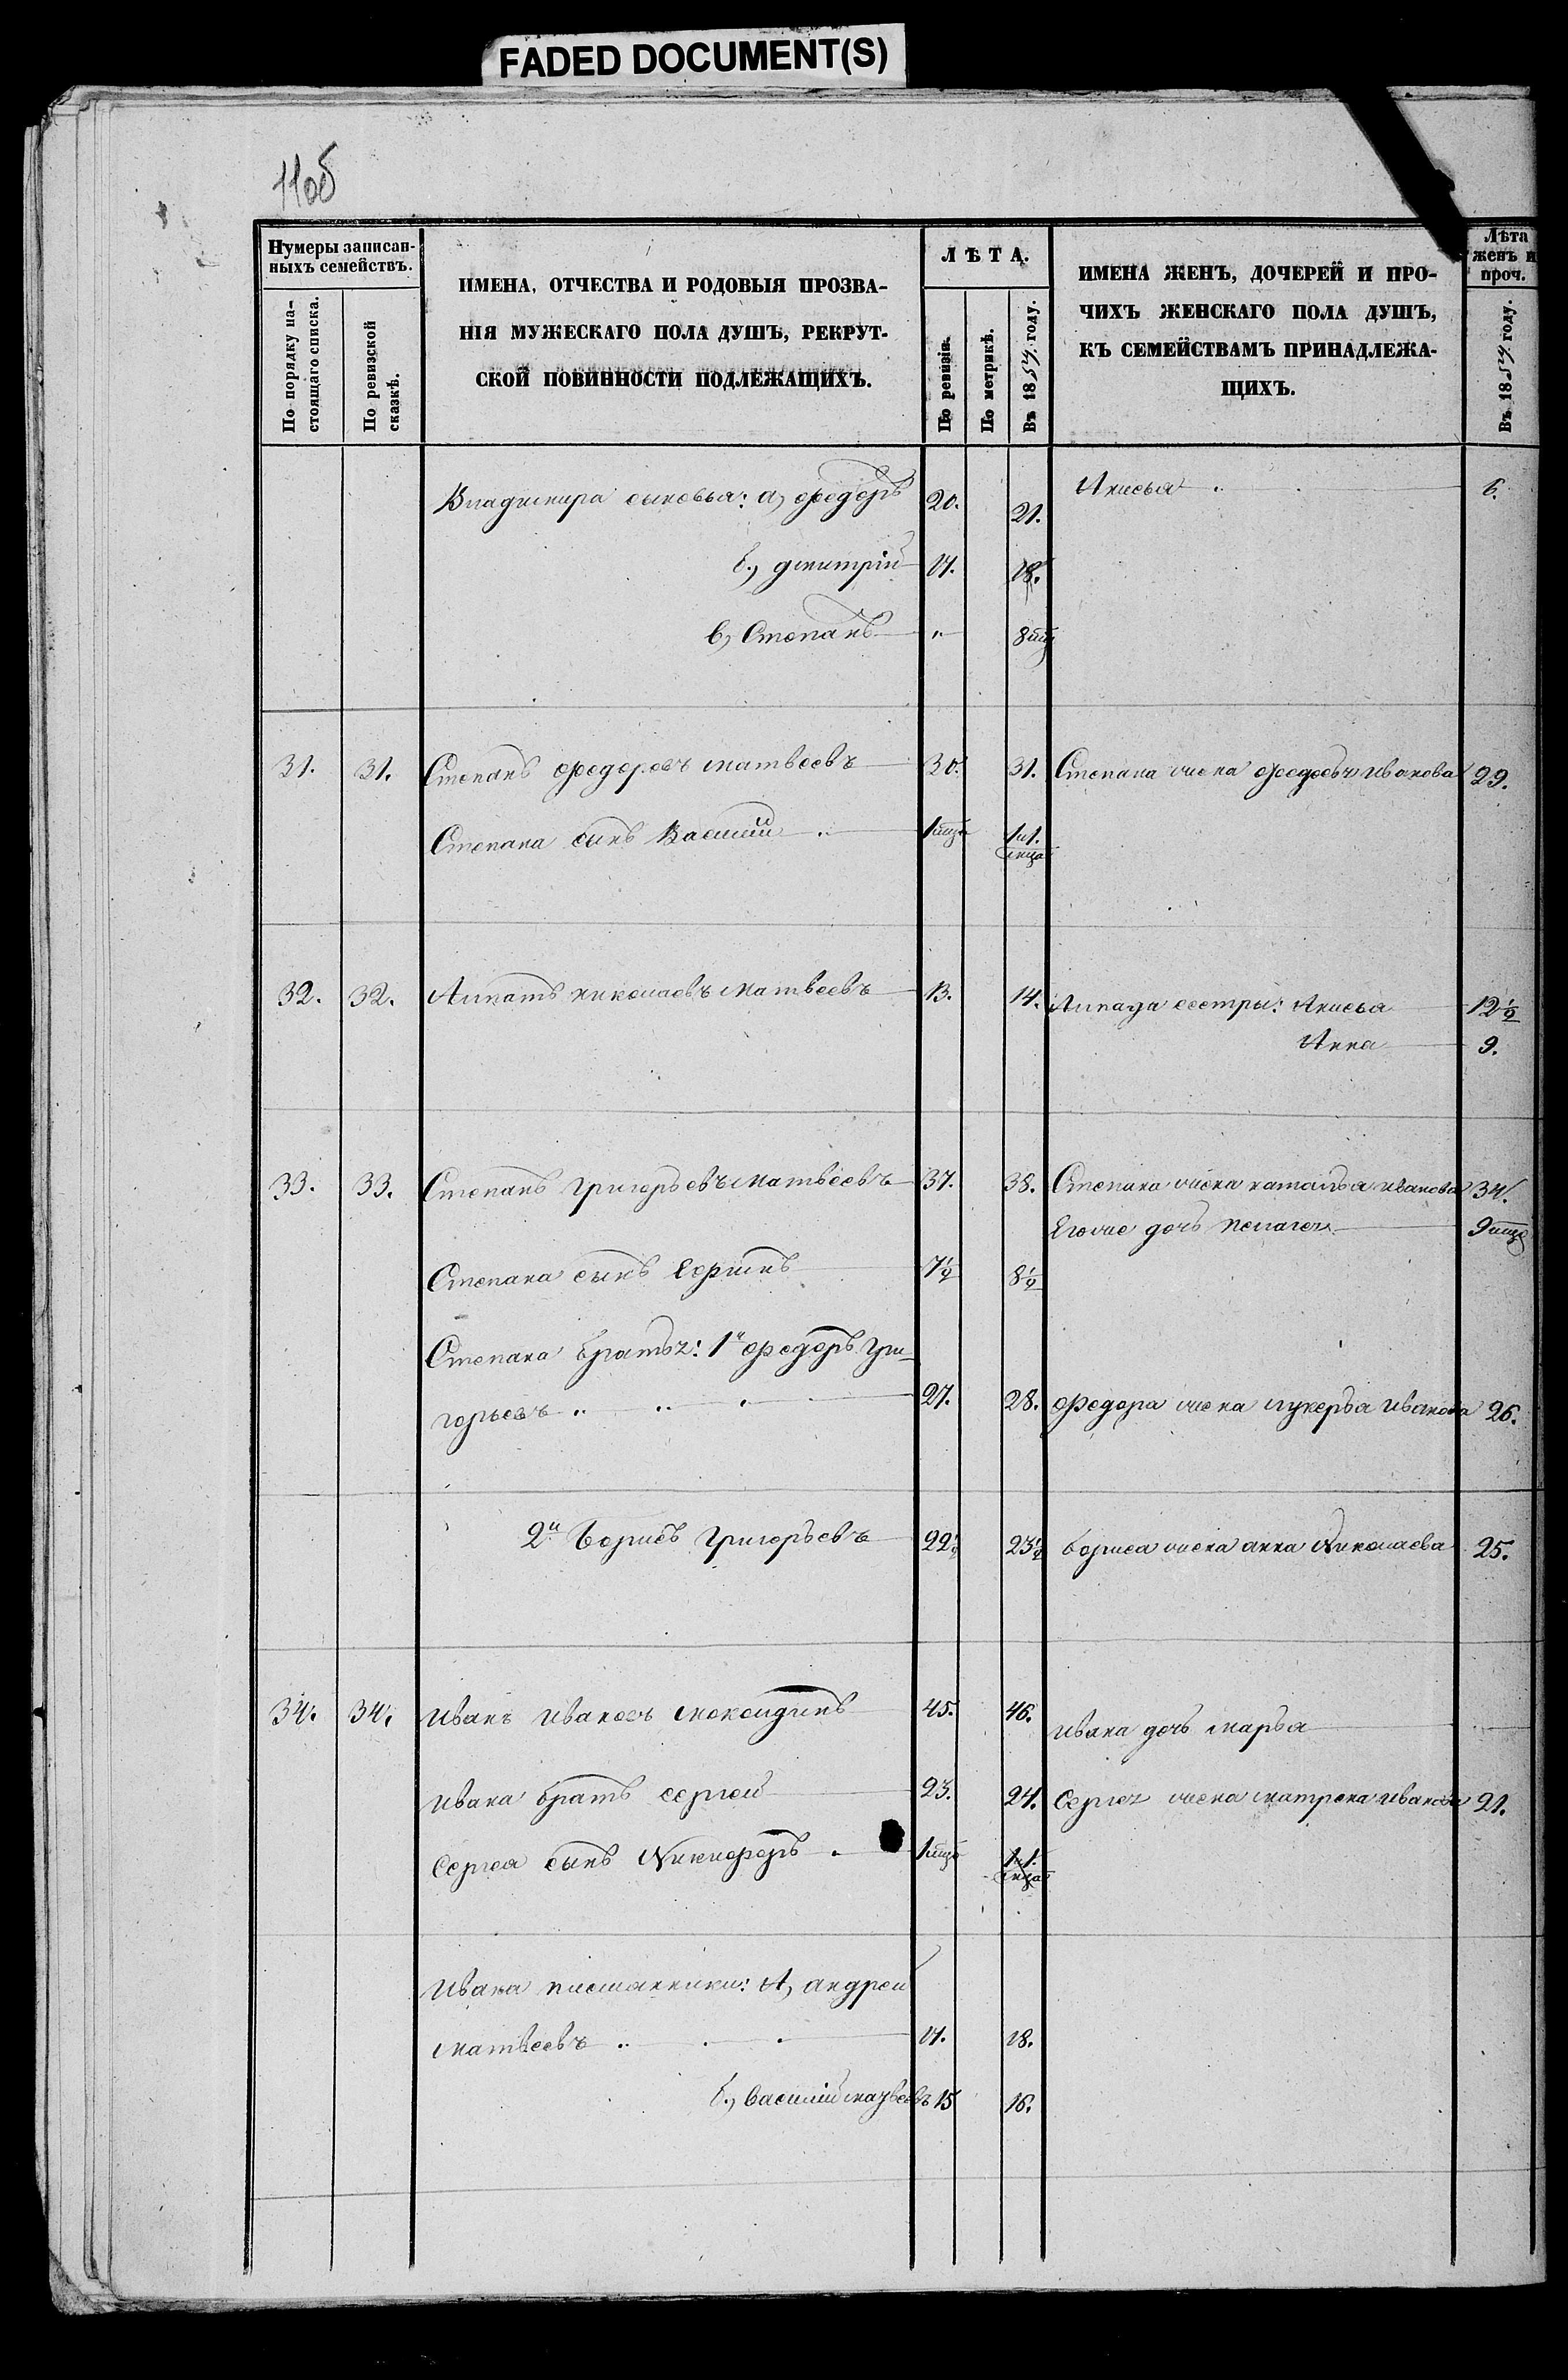 FADED DOCUMENT(S)
11об
Нумеры записан-
ныхъ семействъ.
По порядку на-
стоящаго списка.
По ревизской
сказкѣ.
ИМЕНА, ОТЧЕСТВА И РОДОВЫЯ ПРОЗВА-
НІЯ МУЖЕСКАГО ПОЛА ДУШЪ, РЕКРУТ-
СКОЙ ПОВИННОСТИ ПОДЛЕЖАЩИХЪ.
ЛѢТА.
По ревизіи.
По метрикѣ.
Въ 1857 году.
ИМЕНА ЖЕНЪ, ДОЧЕРЕЙ И ПРО-
ЧИХЪ ЖЕНСКАГО ПОЛА ДУШЪ,
КЪ СЕМЕЙСТВАМЪ ПРИНАДЛЕЖА-
ЩИХЪ.
Лѣта
женъ и
проч.
Въ 1857 году.
Владимира сыновья: а, Федоръ 20. 21. Анисья 6.
б., дмитрій 17. 18.
в, Степанъ " 8
31. 31. Степанъ Федоровъ Матвеевъ 30. 31. Степана жена Иванова 29.
Степана сынъ Василій 1 1 и 1.
32. 32. Липатъ николаевъ Матвеевъ 13. 14. Липата сестры: Анисья 12½
Анна 9.
33. 33. Степанъ Григорьевъ Матвеевъ 37. 38. Степана жена наталья иванова 34.
Егоже дочь пелагея 9
Степана сынъ 7½ 8½
Степана братья: 1й Федоръ Гри-
горьевъ 27. 28. Федора жена лукерья Иванова 26.
2й Борисъ Григорьевъ 22½ 23½ Бориса жена анна Николаева 25.
34. 34. Иванъ Ивановъ 45. 46. Ивана дочь марья
Ивана братъ сергей 23. 24. Сергея жена матрена Иванова 21.
Сергея сынъ Никифоръ 1 1 и 1.
Ивана племянники: А, андрей
Матвеевъ 17. 18.
б., Василій матвеевъ 15 16.